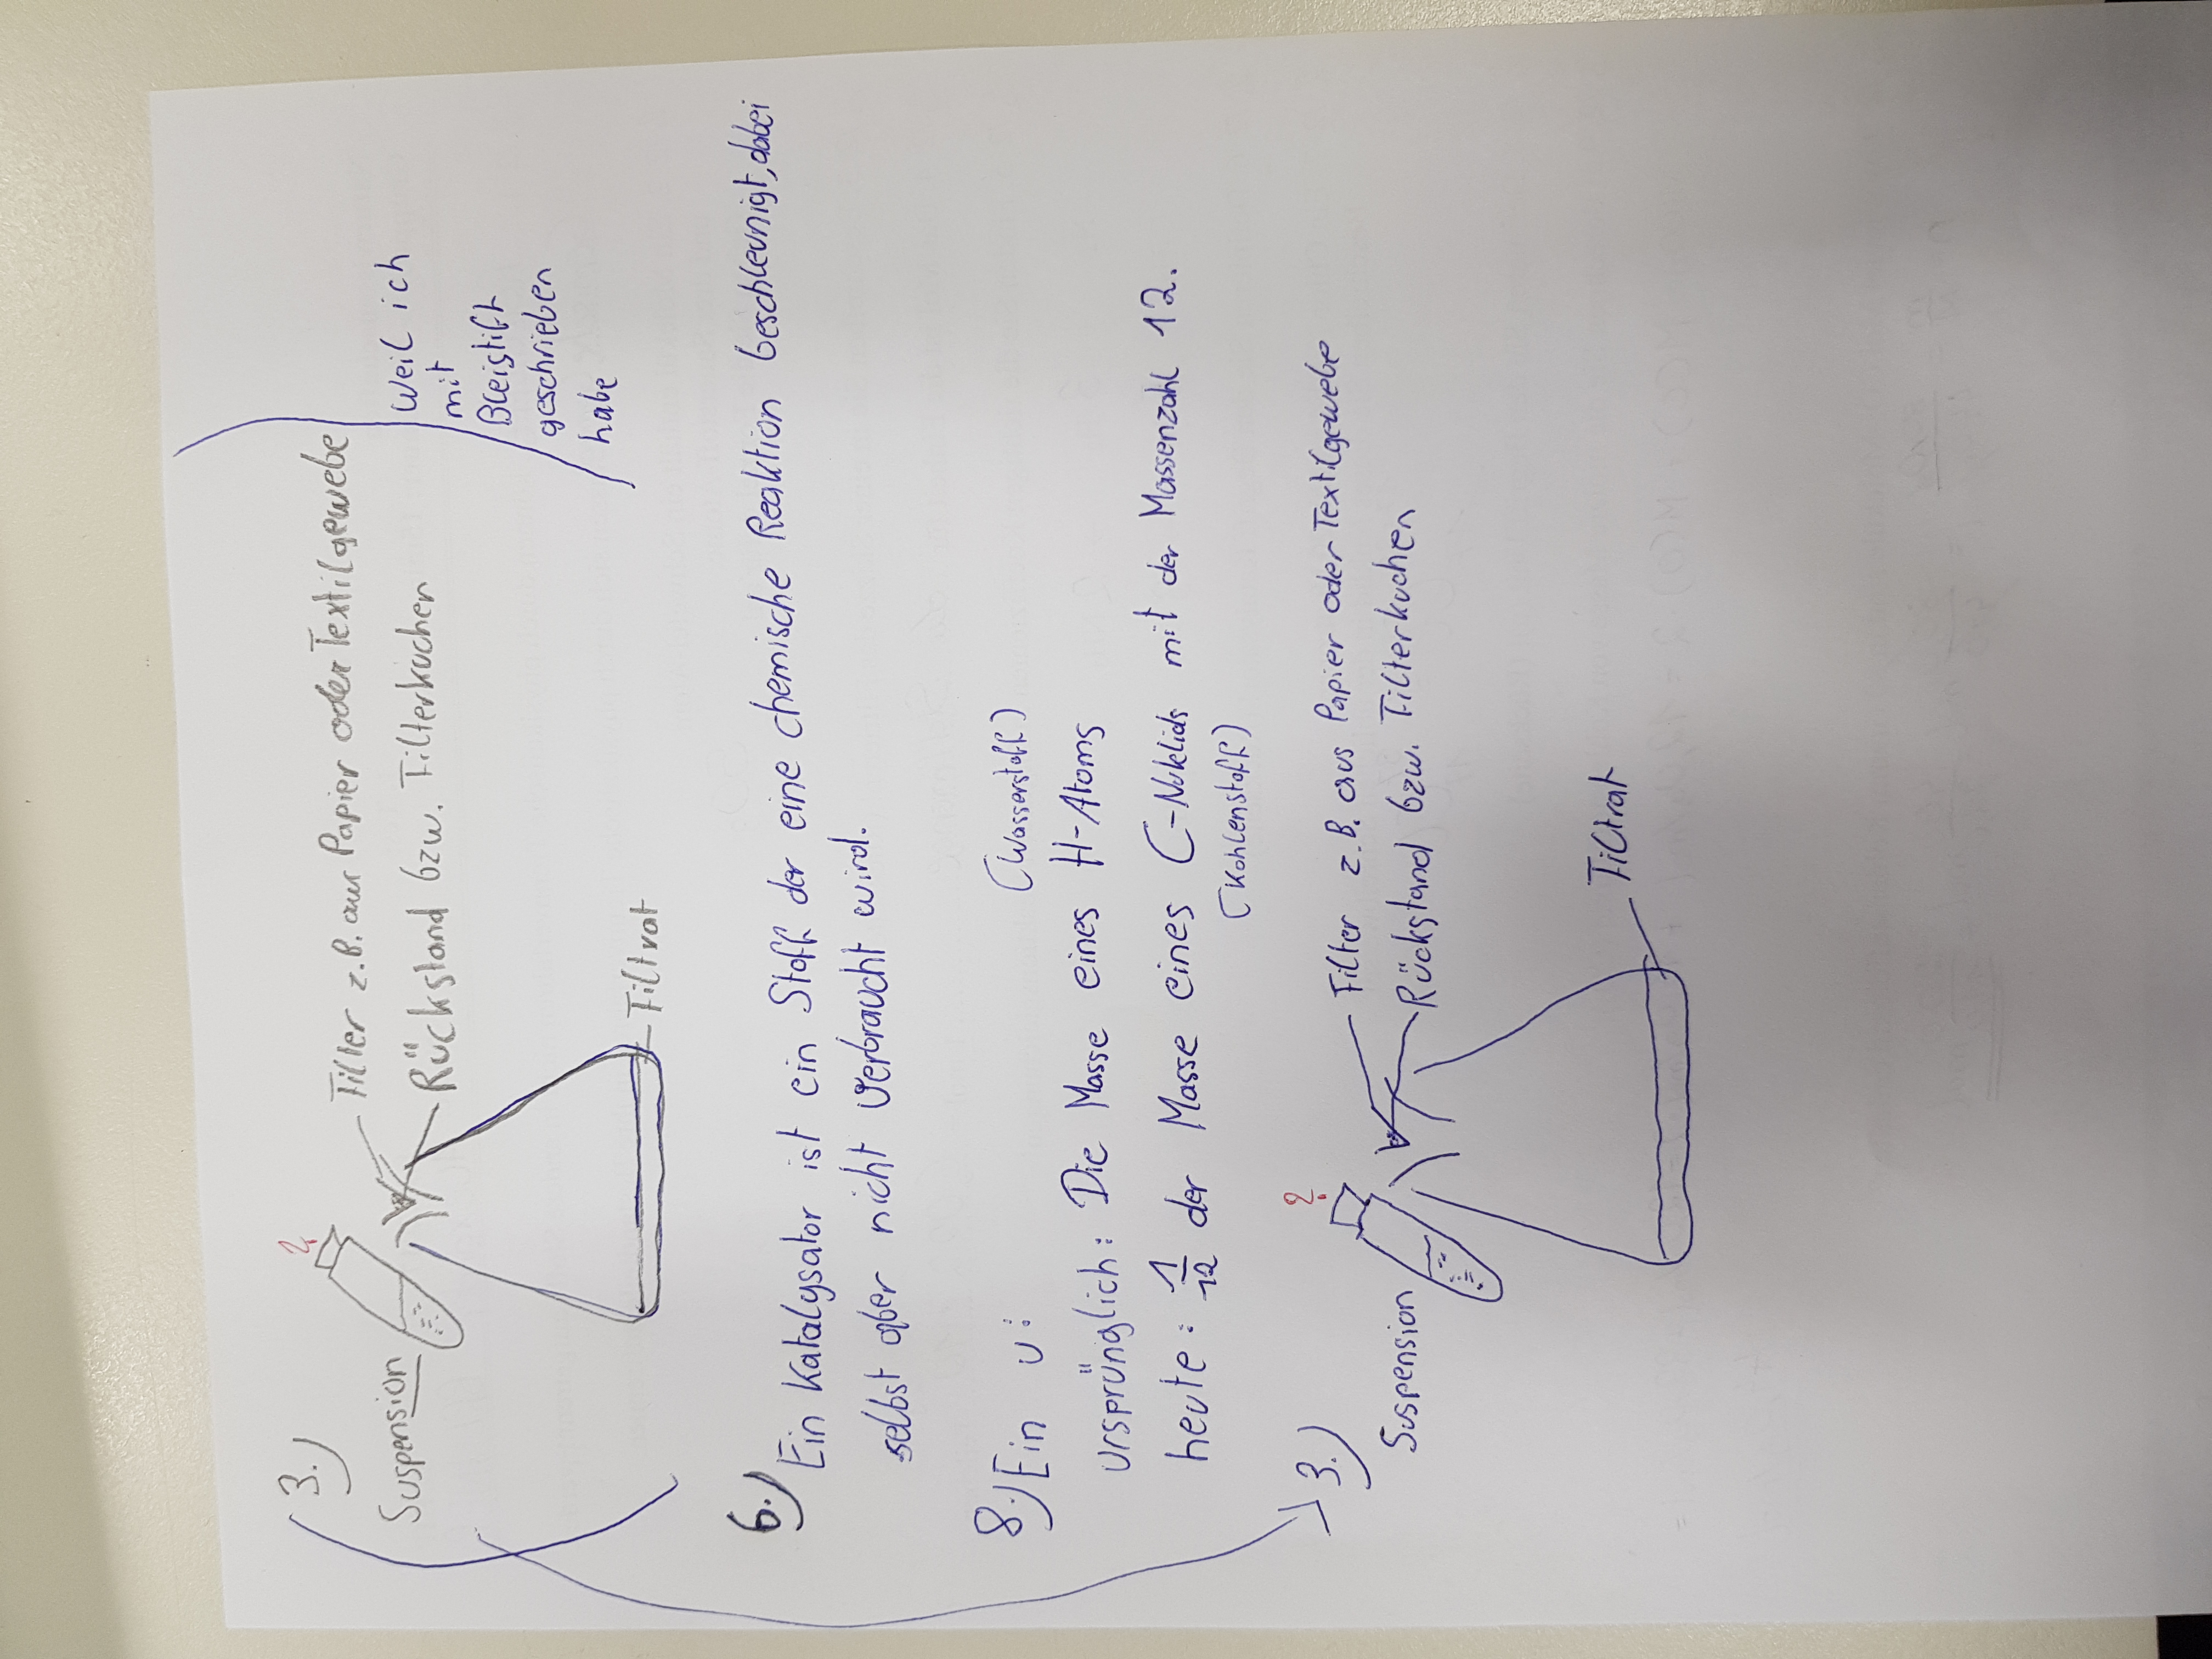 3.)
?
Filter z.B. aus Papier oder Textilgewebe
Suspension
Rückstand bzw. Filterkuchen
Filtrat
weil ich
mit
Bleistift
geschrieben
habe
6.)
Ein Katalysator ist ein Stoff der eine chemische Reaktion beschleunigt, dabei
selbst aber nicht verbraucht wird.
8.) Ein u:
(Wasserstoff)
ursprünglich: Die Masse eines H-Atoms
heute: 1/12 der Masse eines C-Nuklids mit der Massenzahl 12.
(Kohlenstoff)
3.)
?
Filter z.B. aus Papier oder Textilgewebe
Suspension
Rückstand bzw. Filterkuchen
Filtrat